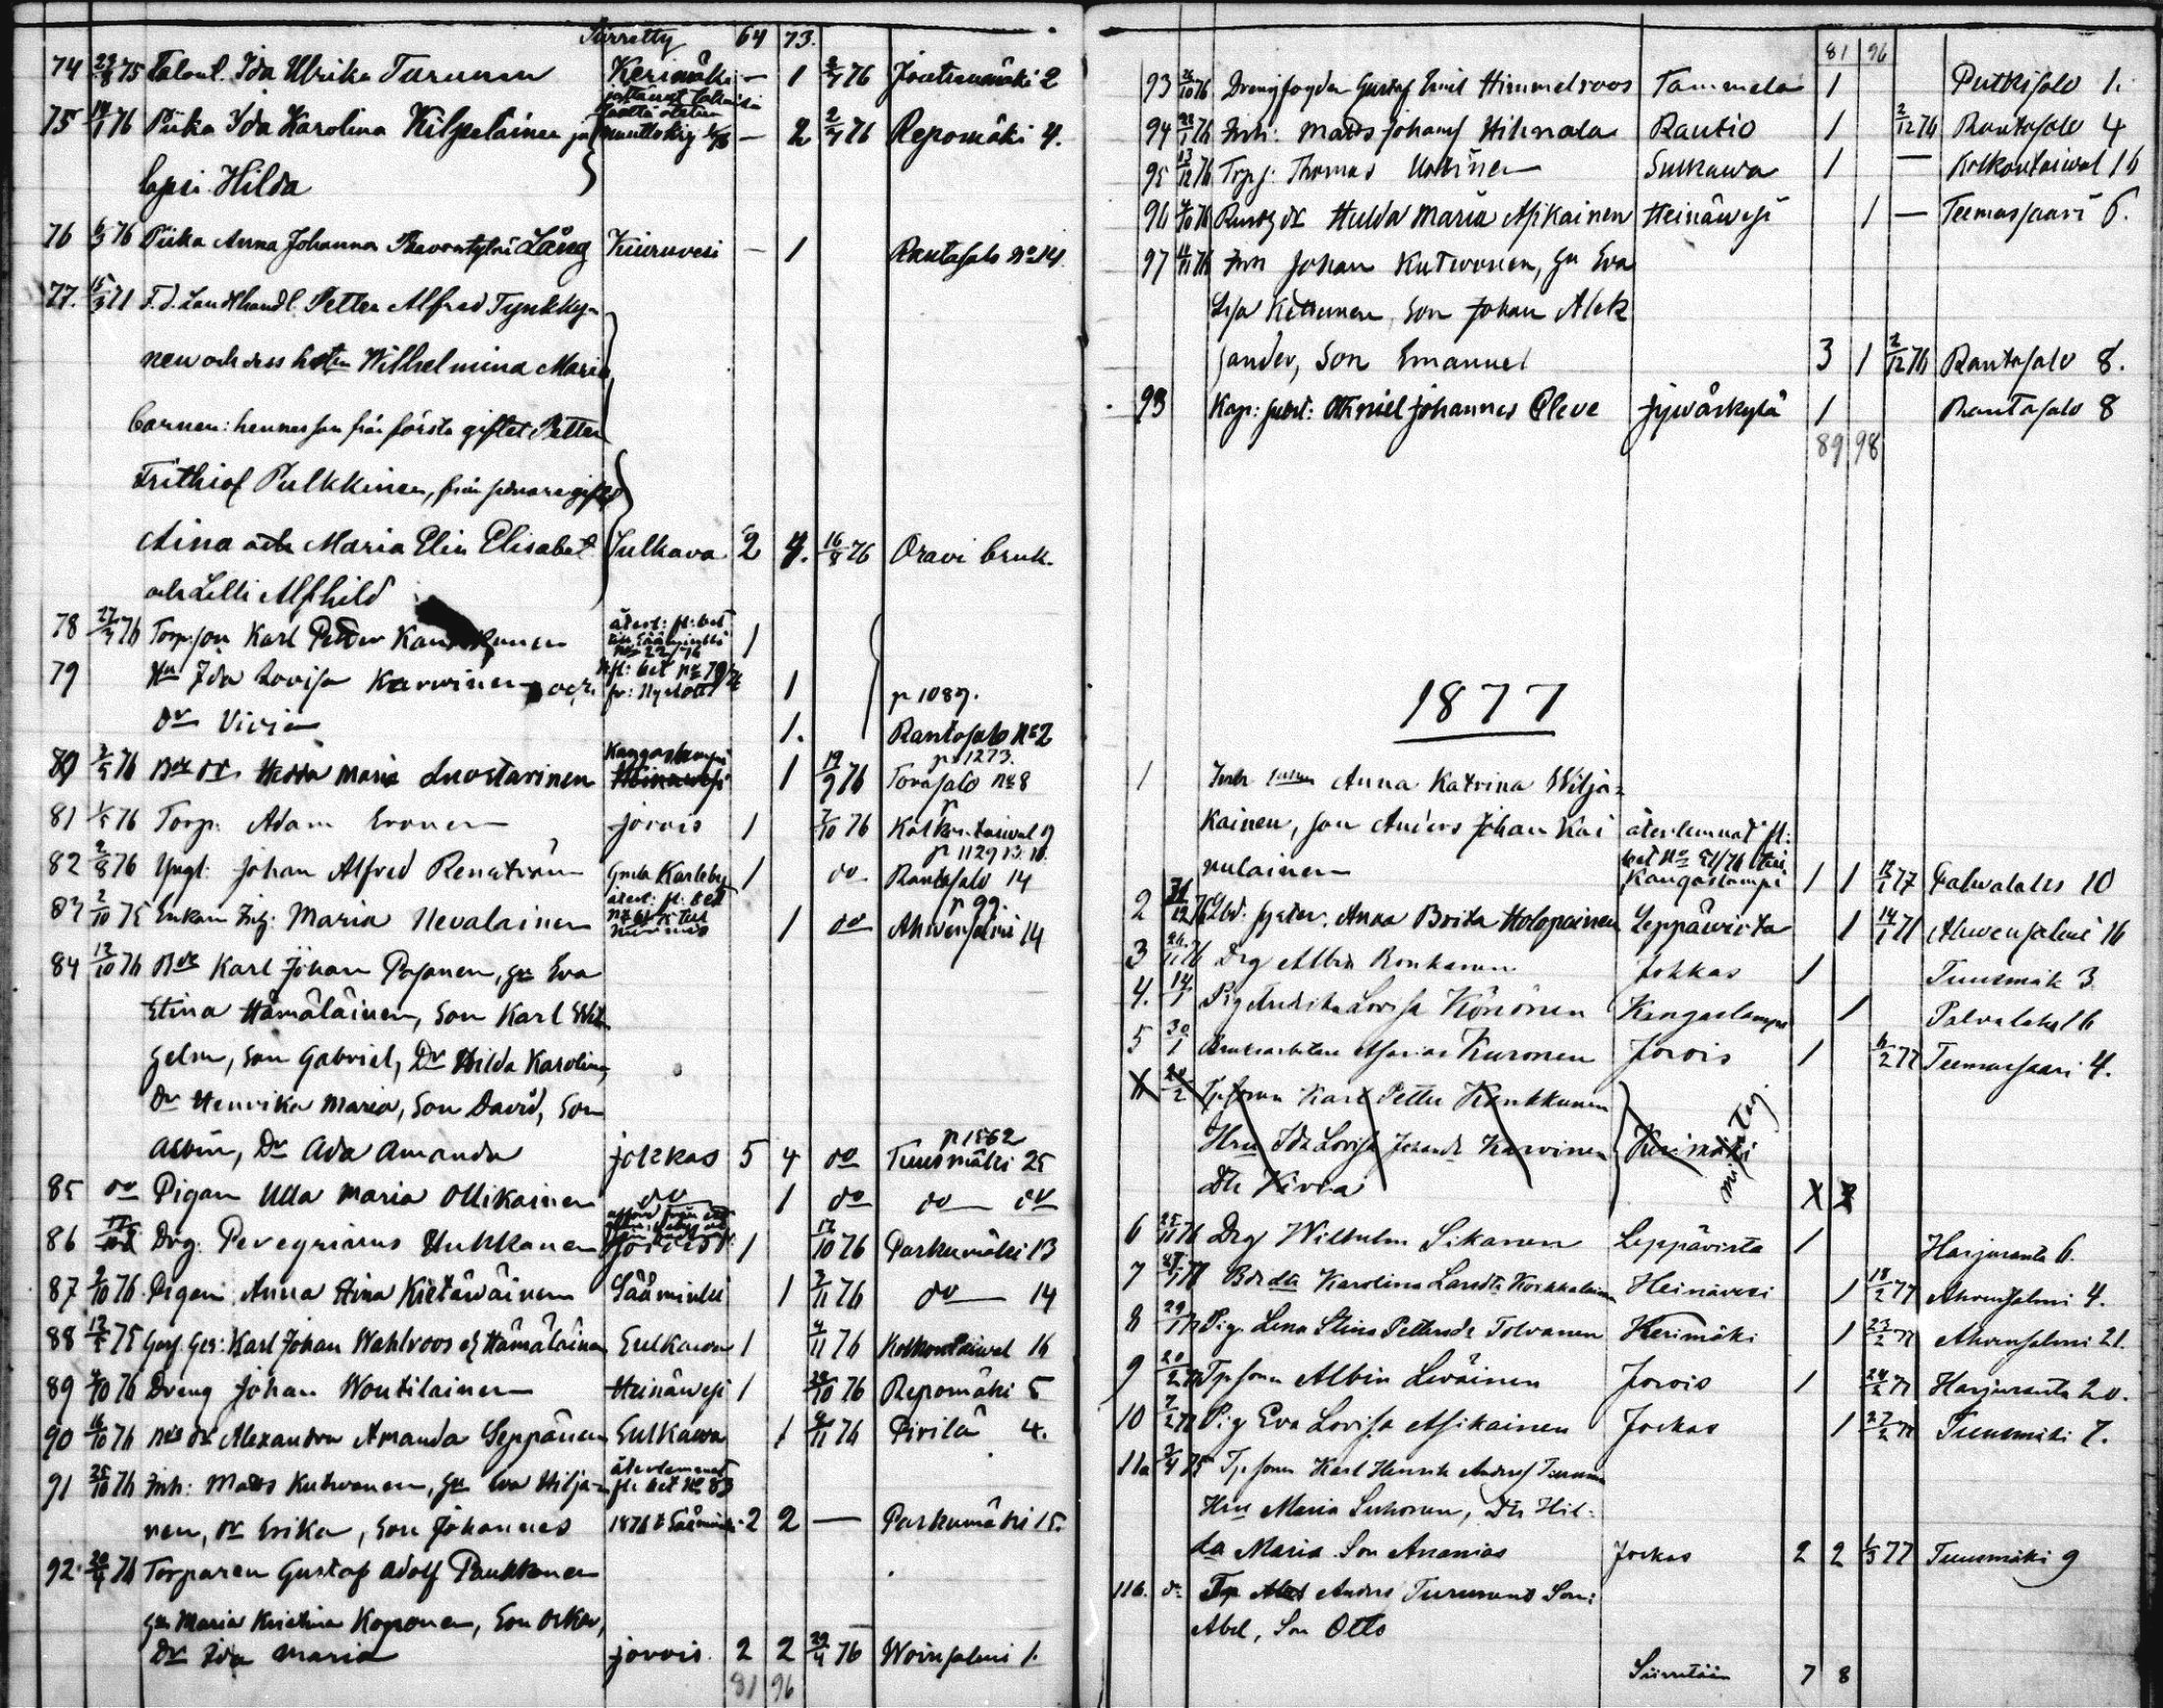 Siirretty 64 73.
74 29/8 75 Talont. Ida Ulrika Turunen Kerimäki — 1 2/7 76 Joutsenmäki 2
75 14/1 76 Piika Ida Karolina Kilpeläinen ja — 2 2/7 76 Repomäki 4.
lapsi Hilda
76 6/3 76 Piika Anna Johanna Paavontytär Lång Kiuruvesi — 1 Rantasalo No 14
77. 15/3 71 F.d. Landthandl. Petter Alfred Tynkky-
nen och dess hustru Wilhelmina Maria
barnen: hennes son från första giftet Petter
Frithiof Pulkkinen, från sednare giftet
Aina och Maria Elin Elisabet Sulkava 2 4. 16/8 76 Oravi bruk.
och Lilli Alfhild
78 27/7 76 Torp: son Karl Petter 1
79 Hu Ida Lovisa Karvinen och 1 p 1089.
Dr 1. Rantasalo No 2
p 1273.
Kangaslampi
80 2/5 76 Bde dr Hedda Maria Luostarinen Heinävesi 1 19/9 76 Torasalo No 8
81 1/5 76 Torp. Adam Eronen Jorois 1 7/10 76 Kolkontaival 9
p 1129 13. 10.
82 2/8 76 Yngl: Johan Alfred Renström Gmla Karleby 1 do Rantasalo 14
p 99.
83 2/10 75 Enkan Inh: Maria Nevalainen 1 do Ahvensalmi 14
84 12/10 76 Bde Karl Johan Pasanen, Hu Eva
Stina Hämäläinen, Son Karl Wil
helm, Son Gabriel, Dr Hilda Karolina,
Dr Henrika Maria, Son David, Son
Albin, Dr Ada Amanda Jokkas 5 4 do Tuusmäki 25
p 1562
85 do Pigan Ulla Maria Ollikainen do 1 do do do
86 Drg. Peregrinus Hukkanen Jorois 1 17/10 76 Parkumäki 13
87 9/10 76 Pigan Anna Stina Kietäväinen Sääminki 1 2/11 76 do 14
88 12/5 75 Karl Johan Wahlroos Hämäläinen Sulkava 1 4/11 76 Kolkontaival 16
89 4/10 76 Dreng Johan Woutilainen Heinävesi 1 28/10 76 Repomäki 5
90 16/10 76 Bde dr Alexandra Amanda Seppänen Sulkava 1 4/11 76 Pirilä 4.
91 25/10 76 Inh: Matts Kutvonen, Hu Eva Hilja- återlemnat fl: bet No 83
nen, dr Erika, Son Johannes 1876 t Sääminki 2 2 — Parkumäki 15.
92. 20/4 76 Torparen Gustaf Adolf Paukkonen
Hu Maria Kristina Koponen, Son Oskar,
Dr Ida Maria Jorois. 2 2 29/4 76 Woinsalmi 1.
81 96
81 96
93 2/10 76 Drengfogden Gustaf Emil Himmelroos Tammela 1 Putkisalo 1.
94 28/1 76 Inh: Matts Johans Rautio 1 2/12 76 Rantasalo 4
95 13/12 76 Torp: Thomas Sulkava 1 — Kolkontaival 16
96 4/10 76 Dr Hulda Maria Asikainen Heinävesi 1 — Teemassaari 6.
97 4/11 76 Inh Johan Kutvonen, Hu Eva
Lisa Kettunen, Son Johan Alek
sander, Son Emanuel 3 1 2/12 76 Rantasalo 8.
98 Kap: Othniel Johannes Cleve Jyväskylä 1 Rantasalo 8
89 98
1877
1 Anna Katrina Wilja-
kainen, Son Anders Johan Kai återlemnat fl:
nulainen bet No 51/76 till Kangaslampi 1 1 13/1 77 Palvalaks 10
2 Anna Brita Holopainen Leppävirta 1 14/1 77 Ahvensalmi 16
3 26/11 76 Drg Albin Ronkanen Jokkas 1 Tuusmäk 3.
4. 14/1 Pig Lovisa Könönen Kangaslampi 1 Palvalaks 16
5 30/1 Kuronen Jorois 1 6/2 77 Teemassaari 4.
Tp sonen Karl Petter Kankkunen
Hru Ida Lovisa Karvinen Kerimäki
Dtr
6 25/11 76 Drg Wilhelm Sikanen Leppävirta 1 Harjuranta 6.
7 Bde dtr Karolina Heinävesi 1 18/2 77 Ahvensalmi 4.
8 29/1 77 Pig. Lena Stina Pettersdr Tolvanen Kerimäki 1 23/2 77 Ahvensalmi 21.
9 20/2 77 Tp sonen Albin Leväinen Jorois 1 24/2 77 Harjuranta 20.
10 7/2 77 Pig Eva Lovisa Asikainen Jockas 1 27/2 77 Tuusmäki 7.
11a 3/4 75 Tp sonen Karl Henrik Anders Turunen
Hru Maria Suhonen, Dtr Hil-
da Maria. Son Ananias Jockas 2 2 1/3 77 Tuusmäki 9
11b. do Anders Turunens Son:
Abel, Son Otto
Siirretään 7 8